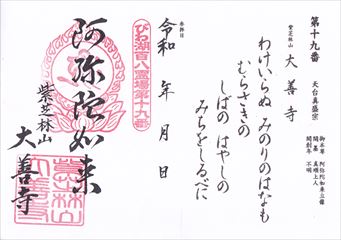 第十九番
紫芝林山 大善寺 天台真盛宗
御本尊 阿弥陀如来立像
開基 真順上人
開創年 不明
わけいらぬ みのりのはなも
むらさきの
しばの はやしの
みちをしるべに
参拝日
令和 年 月 日
びわ湖百八霊場第十九番
阿弥陀如来
紫芝林山
大善寺